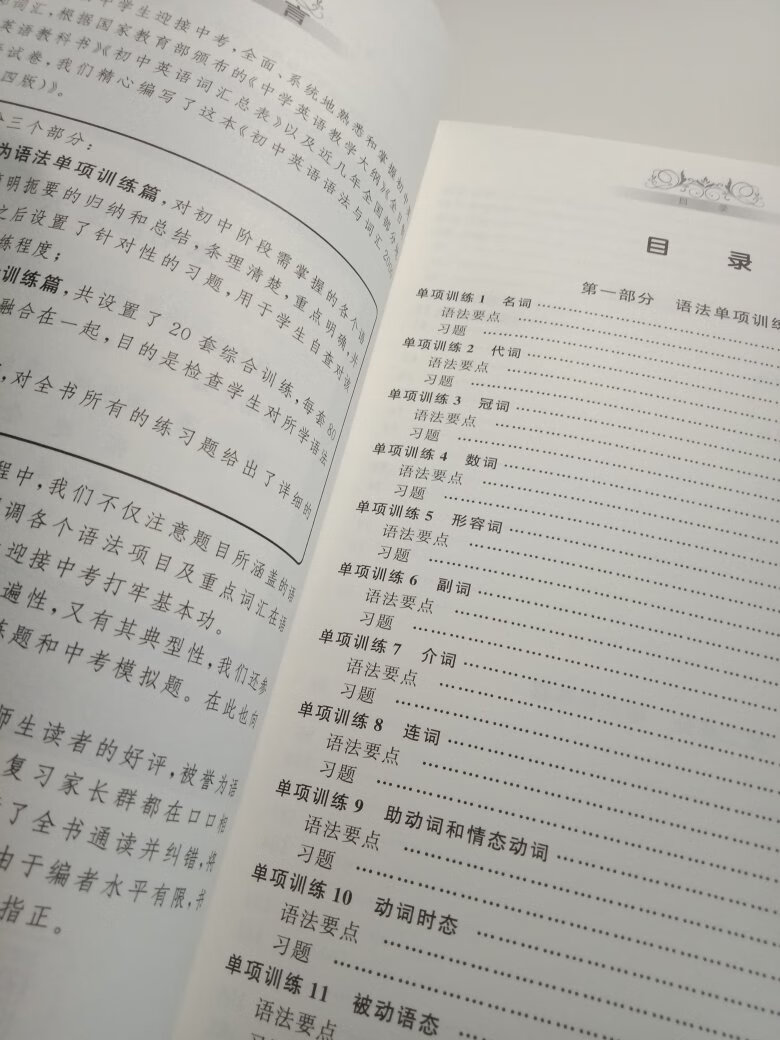 言
中学生迎接中考，全面、系统地熟悉和掌握初中
词汇，根据国家教育部颁布的《中学英语教学大纲》《全日
英语教科书》《初中英语词汇总表》以及近几年全国部分
试卷，我们精心编写了这本《初中英语语法与词汇
四版）》。
三个部分：
为语法单项训练篇，对初中阶段需掌握的各个语
明扼要的归纳和总结，条理清楚，重点明确，并
之后设置了针对性的习题，用于学生自查对该
练程度；
训练篇，共设置了20套综合训练，每套80
融合在一起，目的是检查学生对所学语法
，对全书所有的练习题给出了详细的
程中，我们不仅注意题目所涵盖的语
调各个语法项目及重点词汇在语
迎接中考打牢基本功。
遍性，又有其典型性，我们还参
练题和中考模拟题。在此也向
师生读者的好评，被誉为语
复习家长群都在口口相
了全书通读并纠错，将
由于编者水平有限，书
指正。
目 录
目 录
第一部分 语法单项训练
单项训练1 名词
语法要点
习题
单项训练2 代词
语法要点
习题
单项训练3 冠词
语法要点
习题
单项训练4 数词
语法要点
习题
单项训练5 形容词
语法要点
习题
单项训练6 副词
语法要点
习题
单项训练7 介词
语法要点
习题
单项训练8 连词
语法要点
习题
单项训练9 助动词和情态动词
语法要点
习题
单项训练10 动词时态
语法要点
习题
单项训练11 被动语态
语法要点